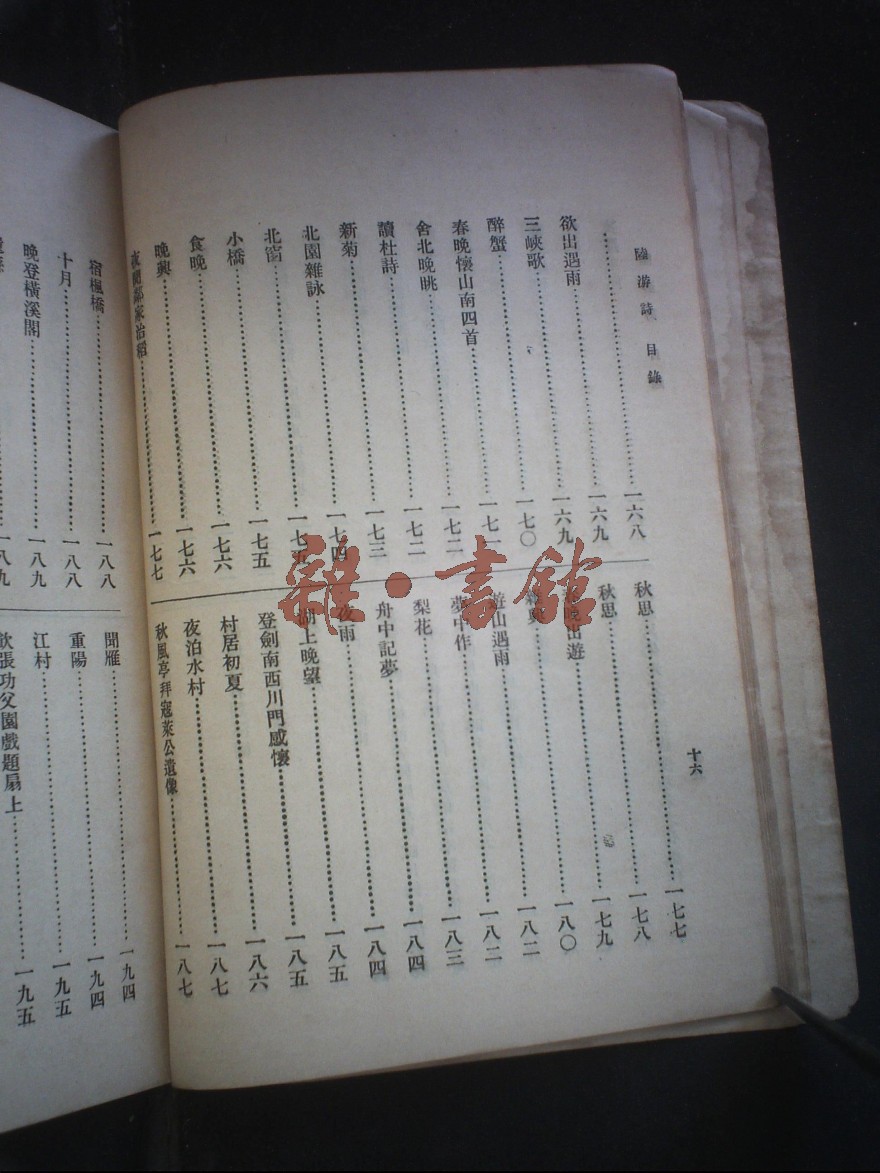 陸游詩 目錄
……………………一六八
欲出遇雨……………………一六九
三峽歌……………………一六九
醉蟹……………………一七〇
春晚懷山南四首……………………一七一
舍北晚眺……………………一七二
讀杜詩……………………一七二
新菊……………………一七三
北園雜詠……………………一七四
北窗……………………一七五
小橋……………………一七五
食晚……………………一七六
晚興……………………一七六
夜聞鄰家治稻……………………一七七
秋思……………………一七七
秋思……………………一七八
晚出遊……………………一七九
興……………………一八〇
遊山遇雨……………………一八二
夢中作……………………一八二
梨花……………………一八三
舟中記夢……………………一八四
夜雨……………………一八四
湖上晚望……………………一八五
登劍南西川門感懷……………………一八五
村居初夏……………………一八六
夜泊水村……………………一八七
秋風亭拜寇萊公遺像……………………一八七
十六
雜·書館
宿楓橋……………………一八八
十月……………………一八八
晚登橫溪閣……………………一八九
……………………一八九
聞雁……………………一九四
重陽……………………一九四
江村……………………一九五
飲張功父園戲題扇上……………………一九五